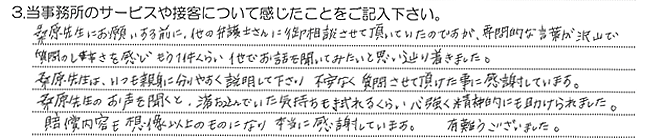 3.当事務所のサービスや接客について感じたことをご記入下さい。
桑原先生にお願いする前に、他の弁護士さんに御相談させて頂いていたのですが、専門的な言葉が沢山で
質問のしにくさを感じ もう1件くらい 他でお話を聞いてみたいと思い辿り着きました。
桑原先生は、いつも親身に分りやすく説明して下さり 不安なく質問させて頂けた事に感謝しています。
桑原先生のお声を聞くと、落ち込んでいた気持ちも拭われるくらい 心強く精神的にも助けられました。
賠償内容も想像以上のものになり 本当に感謝しています。 有難うございました。